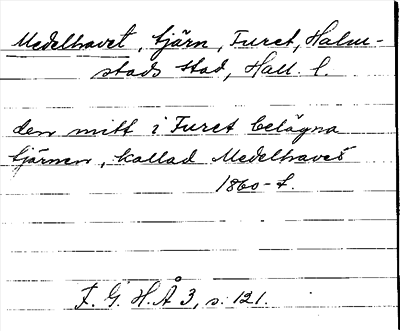 Medelhavet, tjärn, Furet, Halm-
stads stad, Hall. l.
den mitt i Furet belägna
tjärnen, kallad Medelhavet
1860-t.
F. G. H. Å 3, s. 121.